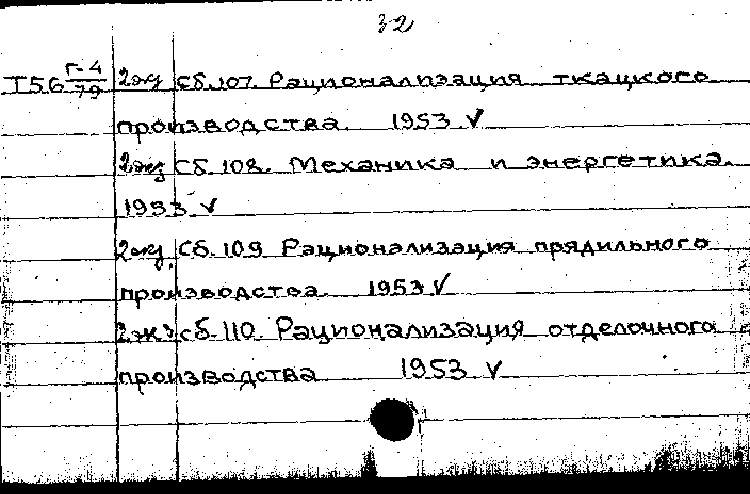 32
Т56 Г-4/79 2экз Сб.107. Рационализация ткацкого
производства. 1953 V
2экз Сб. 108. Механика и энергетика.
1953 V
2экз. Сб. 109 Рационализация прядильного
производства. 1953 V
2экз сб. 110. Рационализация отделочного
производства 1953 V